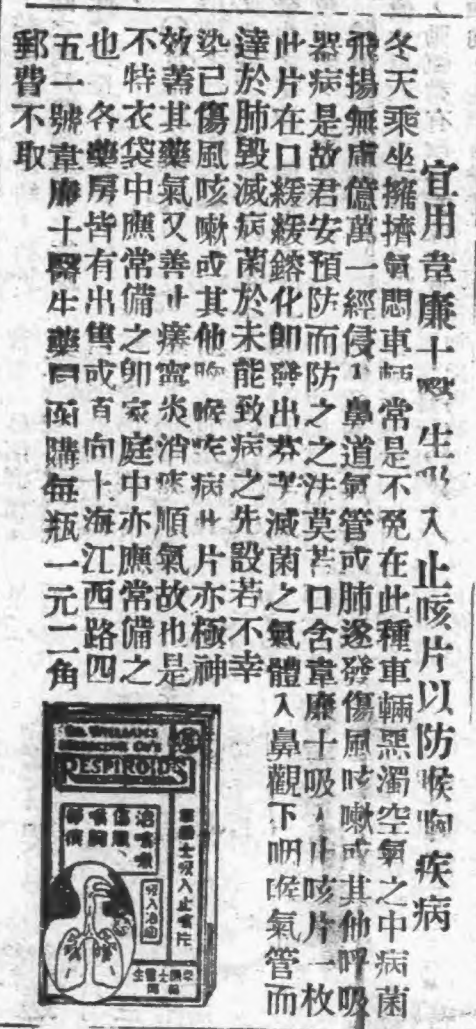 宜用韋廉士醫生吸入止咳片以防喉胸疾病
冬天乘坐擁擠氣悶車輛常是不免在此種車輛黑濁空氣之中病菌
飛揚無慮億萬一經侵入鼻道氣管或肺遂發傷風咳嗽或其他呼吸
器病是故君安預防而防之之法莫若口含韋廉士吸入止咳片一枚
此片在口緩緩鎔化卽發出芬芳滅菌之氣體入鼻觀下咽喉氣管而
達於肺毀滅病菌於未能致病之先設若不幸
染已傷風咳嗽或其他胸喉疾病此片亦極神
效善其藥氣又善止癢寧炎消痰順氣故也是
不特衣袋中應常備之卽家庭中亦應常備之
也 各藥房皆有出售或直向上海江西路四
五一號韋廉士醫生藥局函購每瓶一元二角
郵費不取
DR. WILLIAMS
MEDICINE CO'S
RESPIROIDS
韋廉士吸入止咳片
治咳嗽
傷風
喉胸
吸入治